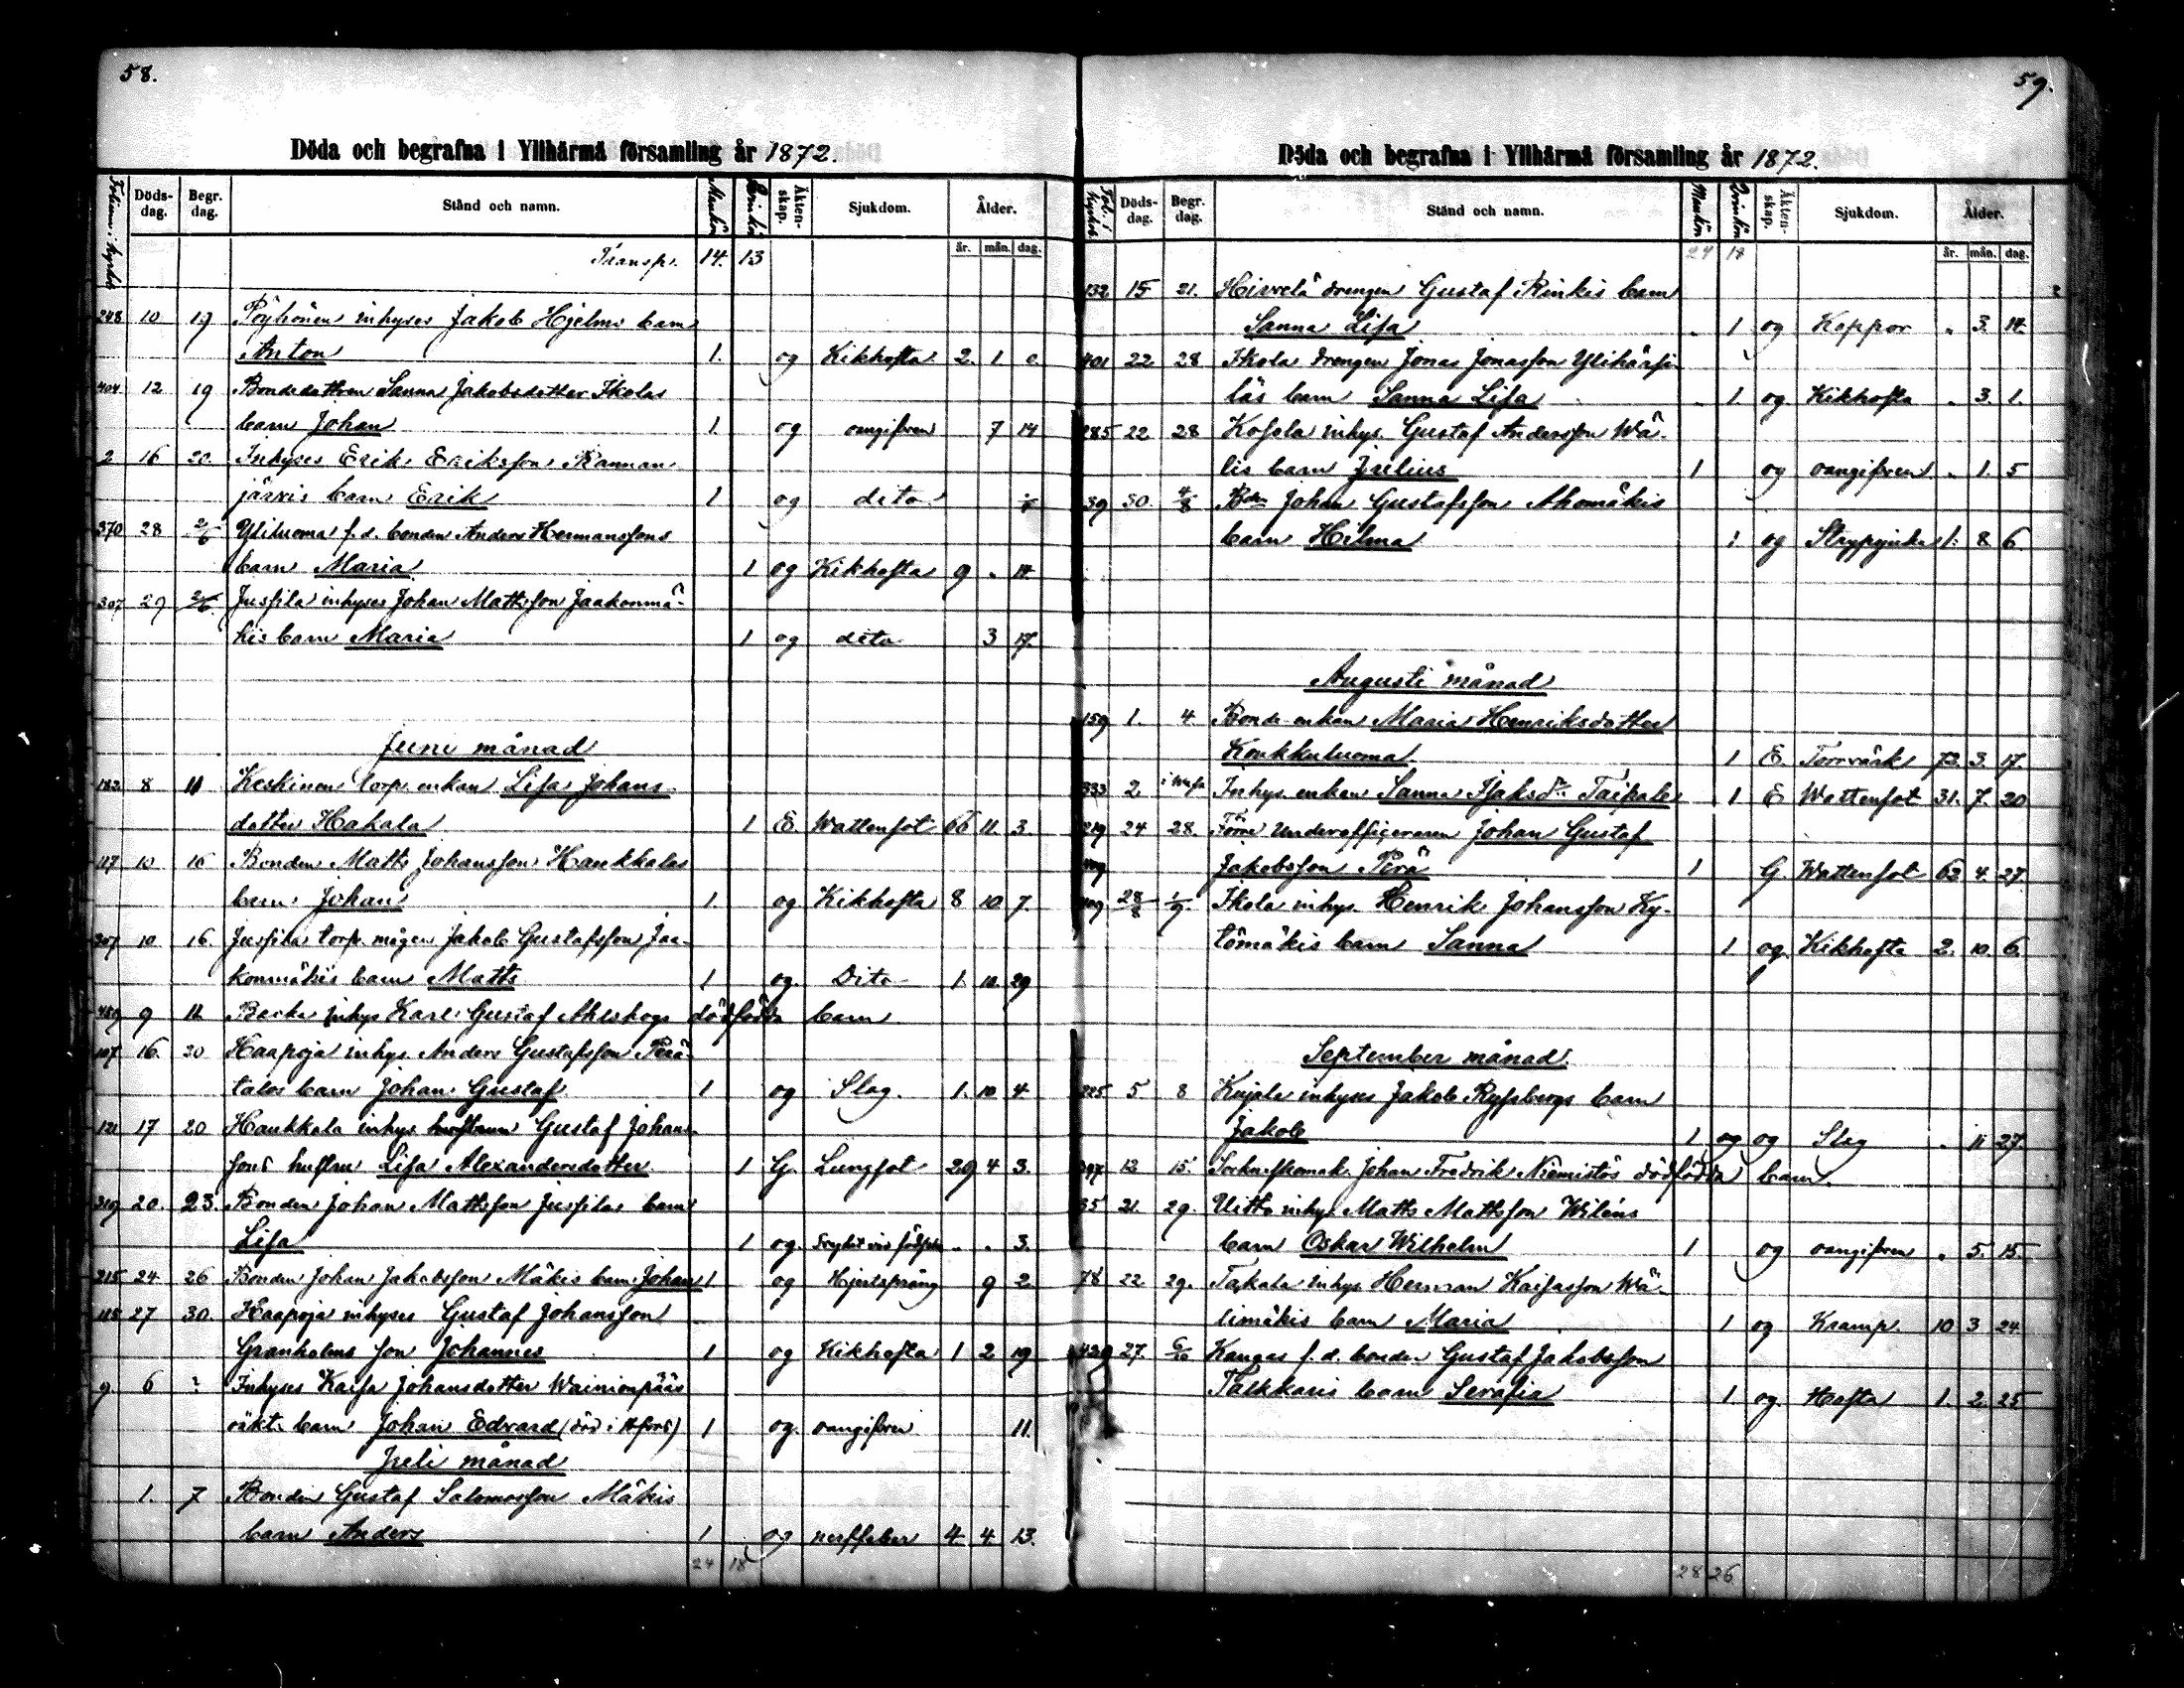 58.
Döda och begrafna i Ylihärmä församling år 1872.
Döds-dag. Begr. dag. Stånd och namn. Mankön Qvinkön Äkten-skap. Sjukdom. Ålder.
år. mån. dag.
Transp. 14. 13
248 10 19 Pöyhönen inhyses Jakob Hjelms barn
Anton 1. og Kikhosta 2. 1. 0
404 12 19 Bondedottren Sanna Jakobsdotter Ikolas
barn Johan 1. og oangifven 7 14
2 16 20. Inhyses Erik Eriksson Rannan
järvis barn Erik 1 og dito
370 28 2/6 Yliluoma f. d. bonden Anders Hermanssons
barn Maria 1 og Kikhosta 9 " 14
307 29 2/6. Jussila inhyses Johan Mattsson Jaakonmä-
kis barn Maria 1 og dito 3 17.
Juni månad
182 8 11 Keskinen torp. enkan Lisa Johans
dotter Hakala 1 E Wattensot 66 11. 3.
117 10 16 Bonden Matts Johansson Haukkalas
barn Johan 1. og Kikhosta 8 10 7.
307 10 16. Jussila torp. mågen Jakob Gustafsson Jaa-
konmäkis barn Matts 1 og. Dito 1. 10. 29
459 9 11 Backa inhys Karl Gustaf Ahlskogs dödfödda barn
107 16. 30 Haapoja inhys. Anders Gustafsson Perä
talos barn Johan Gustaf 1 og Slag. 1. 10 4
121 17 20 Haukkala inhys Gustaf Johans-
sons hustru Lisa Alexandersdotter 1 G. Lungsot 29 4 3.
319 20. 23. Bonden Johan Mattsson Jussilas barn
Lisa 1 og. " " 3.
215 24 26 Bonden Johan Jakobsson Mäkis barn Johan 1 og Hjertsprång 9 2.
118 27 30. Haapoja inhyses Gustaf Johansson
Granholms son Johannes 1 og Kikhosta 1 2 19
9. 6 ? Inhyses Kaisa Johansdotter Wainionpääs
oäkta barn Johan Edvard (död i Hfors) 1 og. oangifven 11.
Juli månad
1. 7 Bonden Gustaf Salomosson Mäkis
barn Anders 1 og nerffeber 4. 4. 13.
24 18
59.
Döda och begrafna i Ylihärmä församling år 1872.
Döds-dag. Begr. dag. Stånd och namn. Mankön Qvinkön Äkten-skap. Sjukdom. Ålder.
24 18 år. mån. dag.
132 15 21. Hirvelä drengen Gustaf Rinkis barn
Sanna Lisa " 1 og Koppor " 3. 14.
401 22 28 Ikola drengen Jonas Jonasson Ylihärsi
läs barn Sanna Lisa " 1. og Kikhosta " 3. 1.
285 22 28 Kosola inhys. Gustaf Andersson Wä-
lis barn Julius 1 og oangifven " 1. 5
39 30. 4/8 Bdn Johan Gustafsson Ahomäkis
barn Helma 1 og Strypsjuka 1. 8 6.
Augusti månad
159 1. 4 Bonde enkan Maria Henriksdotter
Koukkuluoma 1 E. Torrvärk 73. 3. 17.
333 2 i Wasa Inhys. enkan Sanna Isaksdr Taipale 1 E Wattensot 31. 7. 20
219 24 28. Förre Underofficeraren Johan Gustaf
Jakobsson Perä 1 G. Wattensot 62 4. 27.
409 28/8 1/9. Ikola inhys. Henrik Johansson Ky-
tömäkis barn Sanna 1 og. Kikhosta 2. 10. 6.
September månad.
225 5 8 Kujala inhyses Jakob Ryssbergs barn
Jakob 1 og og Slag " 11 27.
397 12 15. Socknskomak. Johan Fredrik Niemistös dödfödda barn.
35 21. 29. Uitto inhys Matts Mattsson Wiléns
barn Oskar Wilhelm 1 og oangifven " 5. 15.
78 22 29. Takala inhys. Herman Kaisasson Wä-
limäkis barn Maria 1 og Kramp. 10 3 24
429 27. 6/10 Kangas f. d. bonden Gustaf Jakobsson
Talkkaris barn Serafia 1 og. Hosta 1. 2. 25
28 26